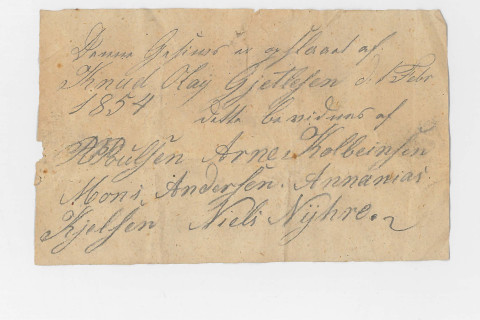 Denne Gesims er opslaaet af
Knud Olaj Gjettesen d. 1 Febr
1854 dette bevidnes af
Poulsen Arne Kolbeinsen
Mons Andersen. Annanias
Kjelsen Niels Nyhre.